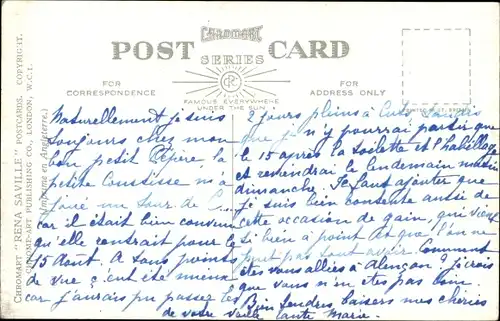 CHROMART "RENA SAVILLE" POSTCARDS. COPYRIGHT.
CHROME-ART PUBLISHING CO., LONDON, W.C.1.
(Imprimé en Angleterre.)
POST CARD
CHROMART
SERIES
FAMOUS EVERYWHERE
UNDER THE SUN
FOR
CORRESPONDENCE
FOR
ADDRESS ONLY
Naturellement je suis
toujours chez mon
bon petit Pépère, la
petite n'a
joué un tour de
car il était bien convenu
qu'elle rentrait pour le
15 août. A tous points
de vue ç'eut été mieux
car j'aurais pu passer
2 jours pleins à
que je n'y pourrai partir que
le 15 après la toilette et l'habillage
et reviendrai le lendemain matin
dimanche. Il faut ajouter que
je suis bien contente aussi de
cette occasion de gain, qui vient
si bien à point dès que l'on ne
peut pas tout avoir. Comment
êtes vous allés à Alençon? je crois
que vous n'en êtes pas loin.
Bien tendres baisers mes chéries
de votre vieille tante Marie.